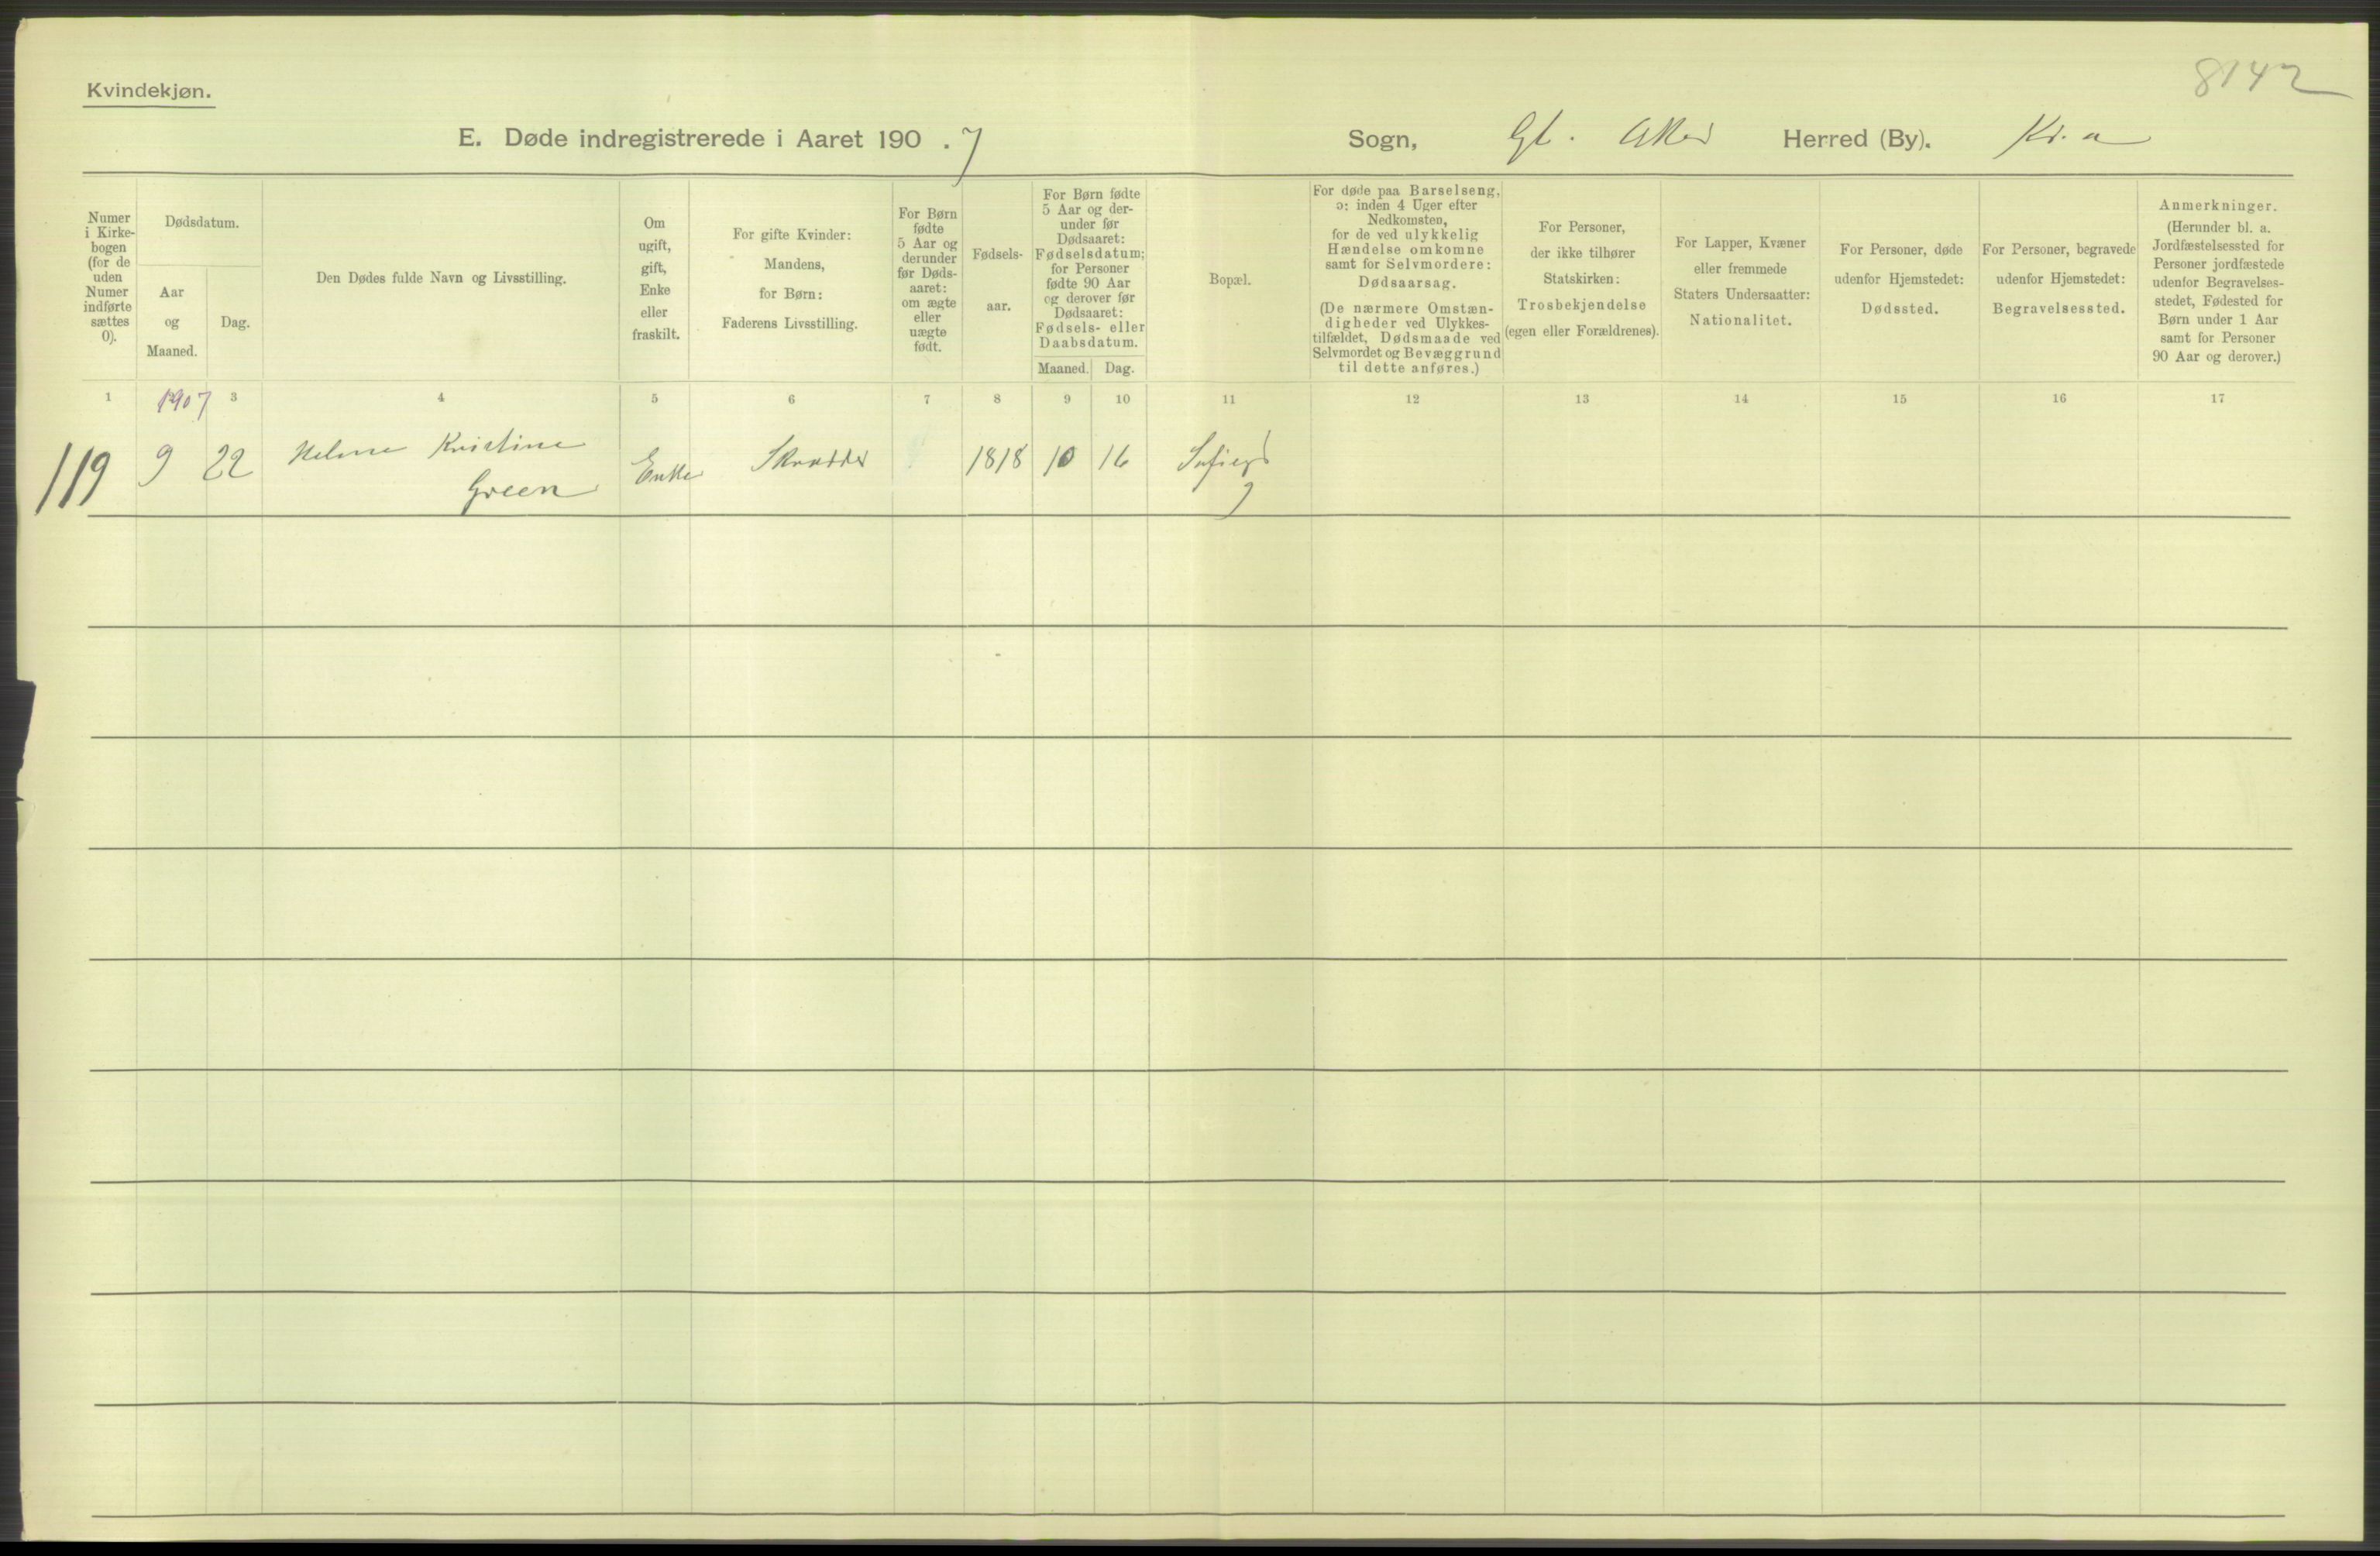 8142
Kvindekjøn.
E. Døde indregistrerede i Aaret 190 . 7 Sogn, Gl. Aker Herred (By). Kr.a
Numer
i Kirke-
bogen
(for de
uden
Numer
indførte
sættes
0).
Dødsdatum.
Aar
og
Maaned.
Dag.
Den Dødes fulde Navn og Livsstilling.
Om
ugift,
gift,
Enke
eller
fraskilt.
For gifte Kvinder:
Mandens,
for Børn:
Faderens Livsstilling.
For Børn
fødte
5 Aar og
derunder
før Døds-
aaret:
om ægte
eller
uægte
født.
Fødsels-
aar.
For Børn fødte
5 Aar og der-
under før
Dødsaaret:
Fødselsdatum;
for Personer
fødte 90 Aar
og derover før
Dødsaaret:
Fødsels- eller
Daabsdatum.
Maaned. Dag.
Bopæl.
For døde paa Barselseng,
ɔ: inden 4 Uger efter
Nedkomsten,
for de ved ulykkelig
Hændelse omkomne
samt for Selvmordere:
Dødsaarsag.
(De nærmere Omstæn-
digheder ved Ulykkes-
tilfældet, Dødsmaade ved
Selvmordet og Bevæggrund
til dette anføres.)
For Personer,
der ikke tilhører
Statskirken:
Trosbekjendelse
(egen eller Forældrenes).
For Lapper, Kvæner
eller fremmede
Staters Undersaatter:
Nationalitet.
For Personer, døde
udenfor Hjemstedet:
Dødssted.
For Personer, begravede
udenfor Hjemstedet:
Begravelsessted.
Anmerkninger.
(Herunder bl. a.
Jordfæstelsessted for
Personer jordfæstede
udenfor Begravelses-
stedet, Fødested for
Børn under 1 Aar
samt for Personer
90 Aar og derover.)
1 1907 3 4 5 6 7 8 9 10 11 12 13 14 15 16 17
119 9 22 Helene Kristine Enke Skrædder 1818 10 16 Sofiegd
Green 9